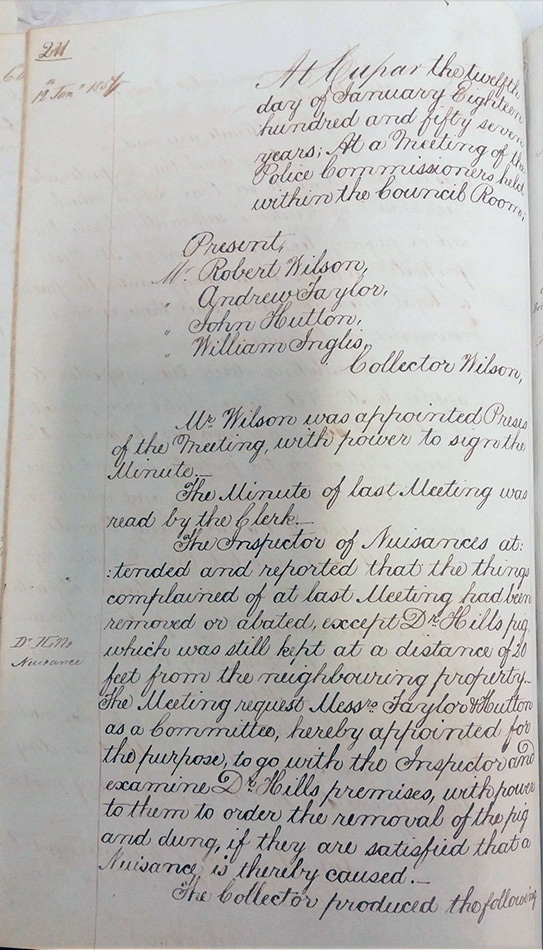 211
12 Jany 1857
At Cupar the twelfth
day of January Eighteen
hundred and fifty seven
years; At a Meeting of the
Police Commissioners held
within the Council Room;
Present,
Mr. Robert Wilson,
" Andrew Taylor,
" John Hutton,
" William Inglis,
Collector Wilson,
Mr. Wilson was appointed Preses
of the Meeting, with power to sign the
Minute.—
The Minute of last Meeting was
read by the Clerk.—
The Inspector of Nuisances at:
:tended and reported that the things
complained of at last Meeting had been
removed or abated, except Dr. Hills pig
which was still kept at a distance of 20
feet from the neighbouring property.—
Dr. Hills
Nuisance
The Meeting request Messrs. Taylor & Hutton
as a Committee, hereby appointed for
the purpose, to go with the Inspector and
examine Dr. Hills premises, with power
to them to order the removal of the pig
and dung, if they are satisfied that a
Nuisance is thereby caused.—
The Collector produced the following